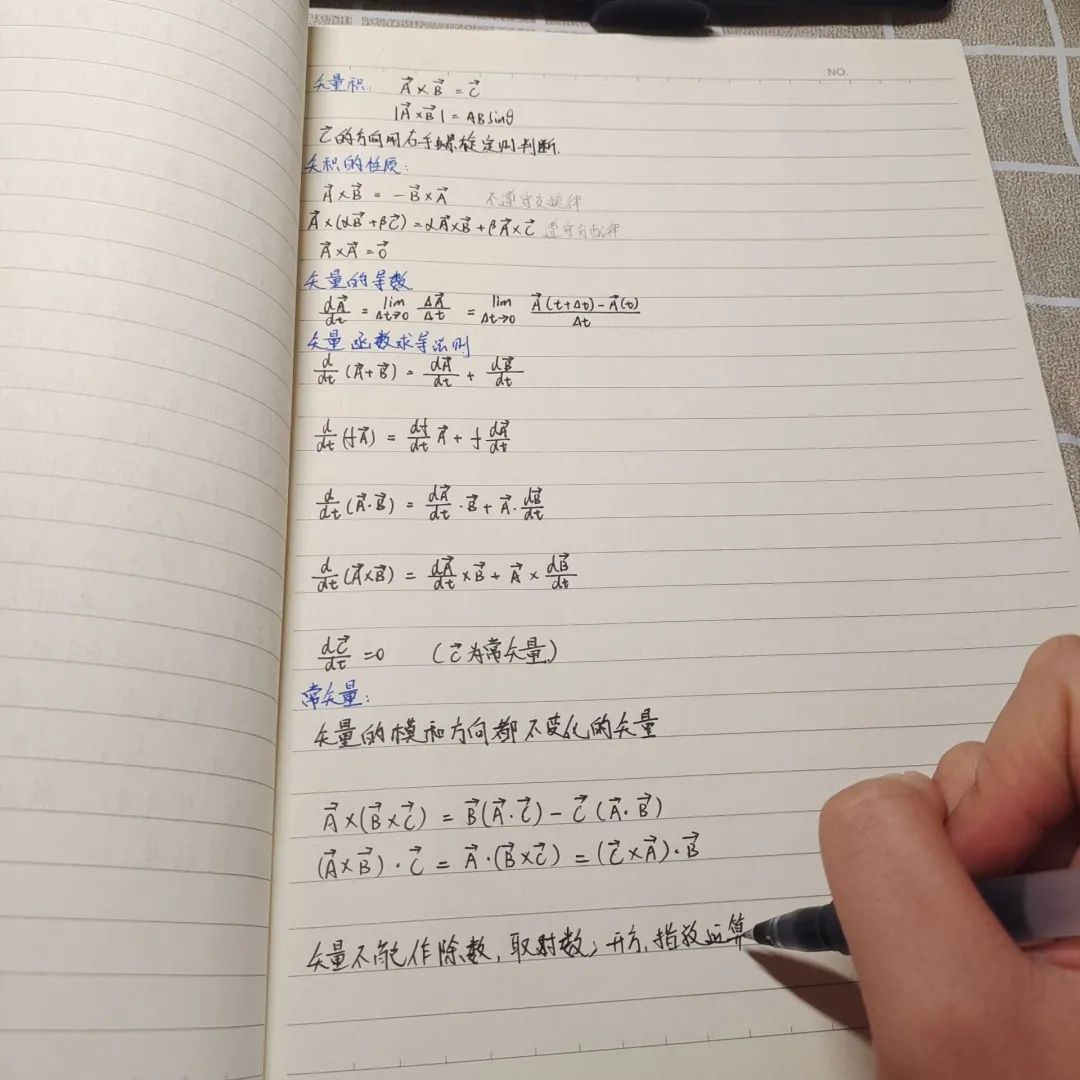 NO.
矢量积: A⃗×B⃗=C⃗
|A⃗×B⃗|=ABsinθ
C⃗的方向用右手螺旋定则判断.
矢积的性质:
A⃗×B⃗ = -B⃗×A⃗ 不遵守交换律
A⃗×(αB⃗+βC⃗)=αA⃗×B⃗+βA⃗×C⃗ 遵守分配律
A⃗×A⃗=0⃗
矢量的导数
dA⃗/dt = lim Δt→0 ΔA⃗/Δt = lim Δt→0 (A⃗(t+Δt)-A⃗(t))/Δt
矢量函数求导法则
d/dt (A⃗+B⃗) = dA⃗/dt + dB⃗/dt
d/dt (fA⃗) = df/dt A⃗ + f dA⃗/dt
d/dt (A⃗·B⃗) = dA⃗/dt ·B⃗ + A⃗· dB⃗/dt
d/dt (A⃗×B⃗) = dA⃗/dt ×B⃗ + A⃗× dB⃗/dt
dC⃗/dt =0 (C⃗为常矢量)
常矢量:
矢量的模和方向都不变化的矢量
A⃗×(B⃗×C⃗) = B⃗(A⃗·C⃗) - C⃗(A⃗·B⃗)
(A⃗×B⃗)·C⃗ = A⃗·(B⃗×C⃗) = (C⃗×A⃗)·B⃗
矢量不能作除数, 取对数, 开方, 指数运算